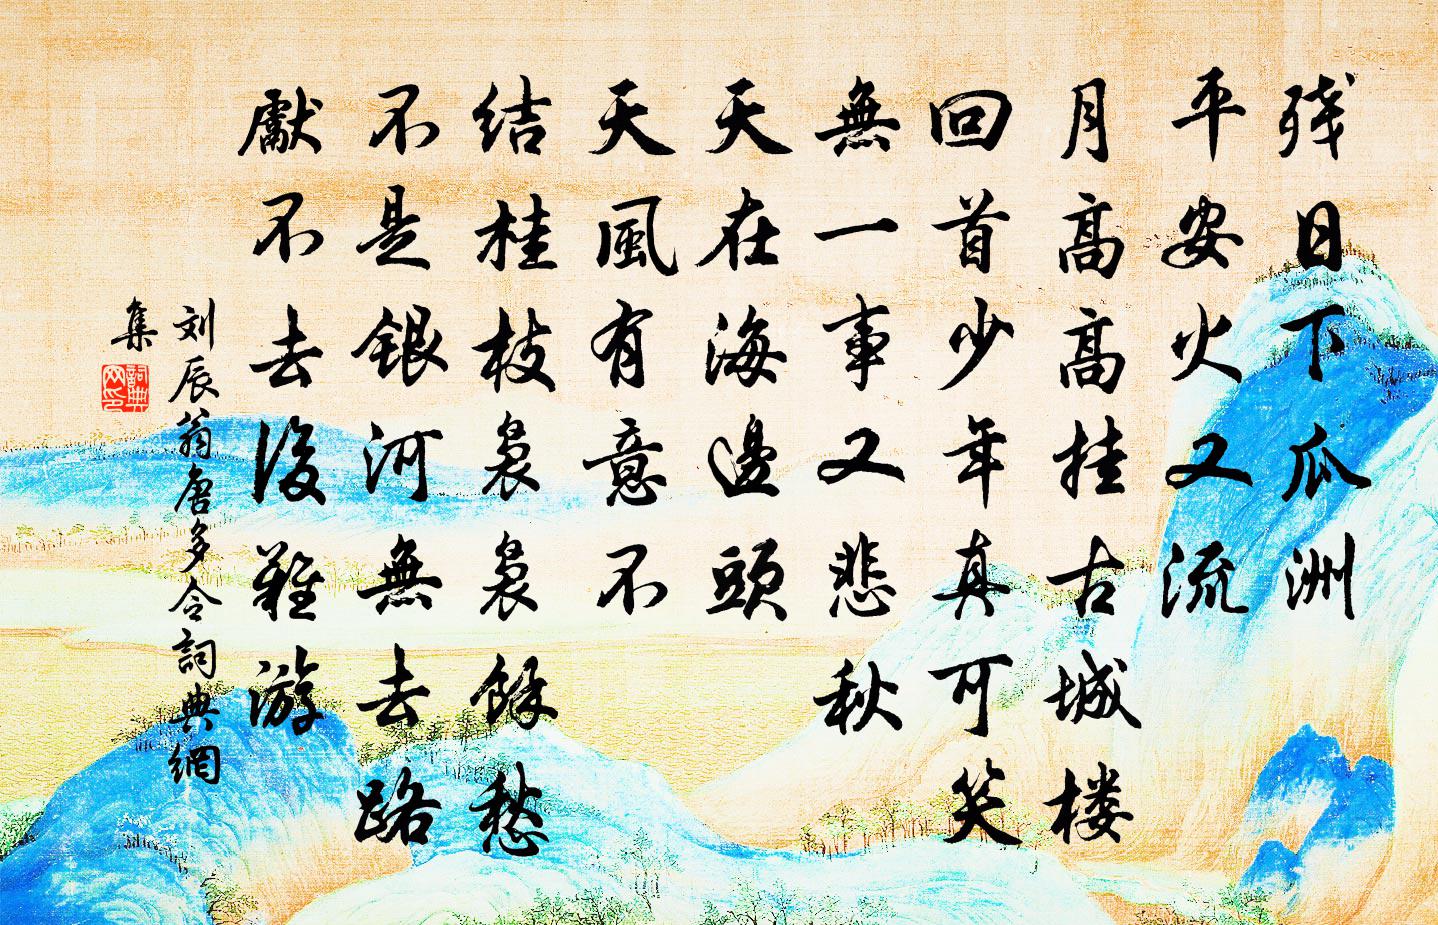 残日下瓜洲
平安火又流
月高高挂古城楼
回首少年真可笑
無一事又悲秋
天在海邊頭
天風有意不
结桂枝裊裊餘愁
不是銀河無去路
獻不去後難游
刘辰翁唐多令詞典網
集
詞典网印